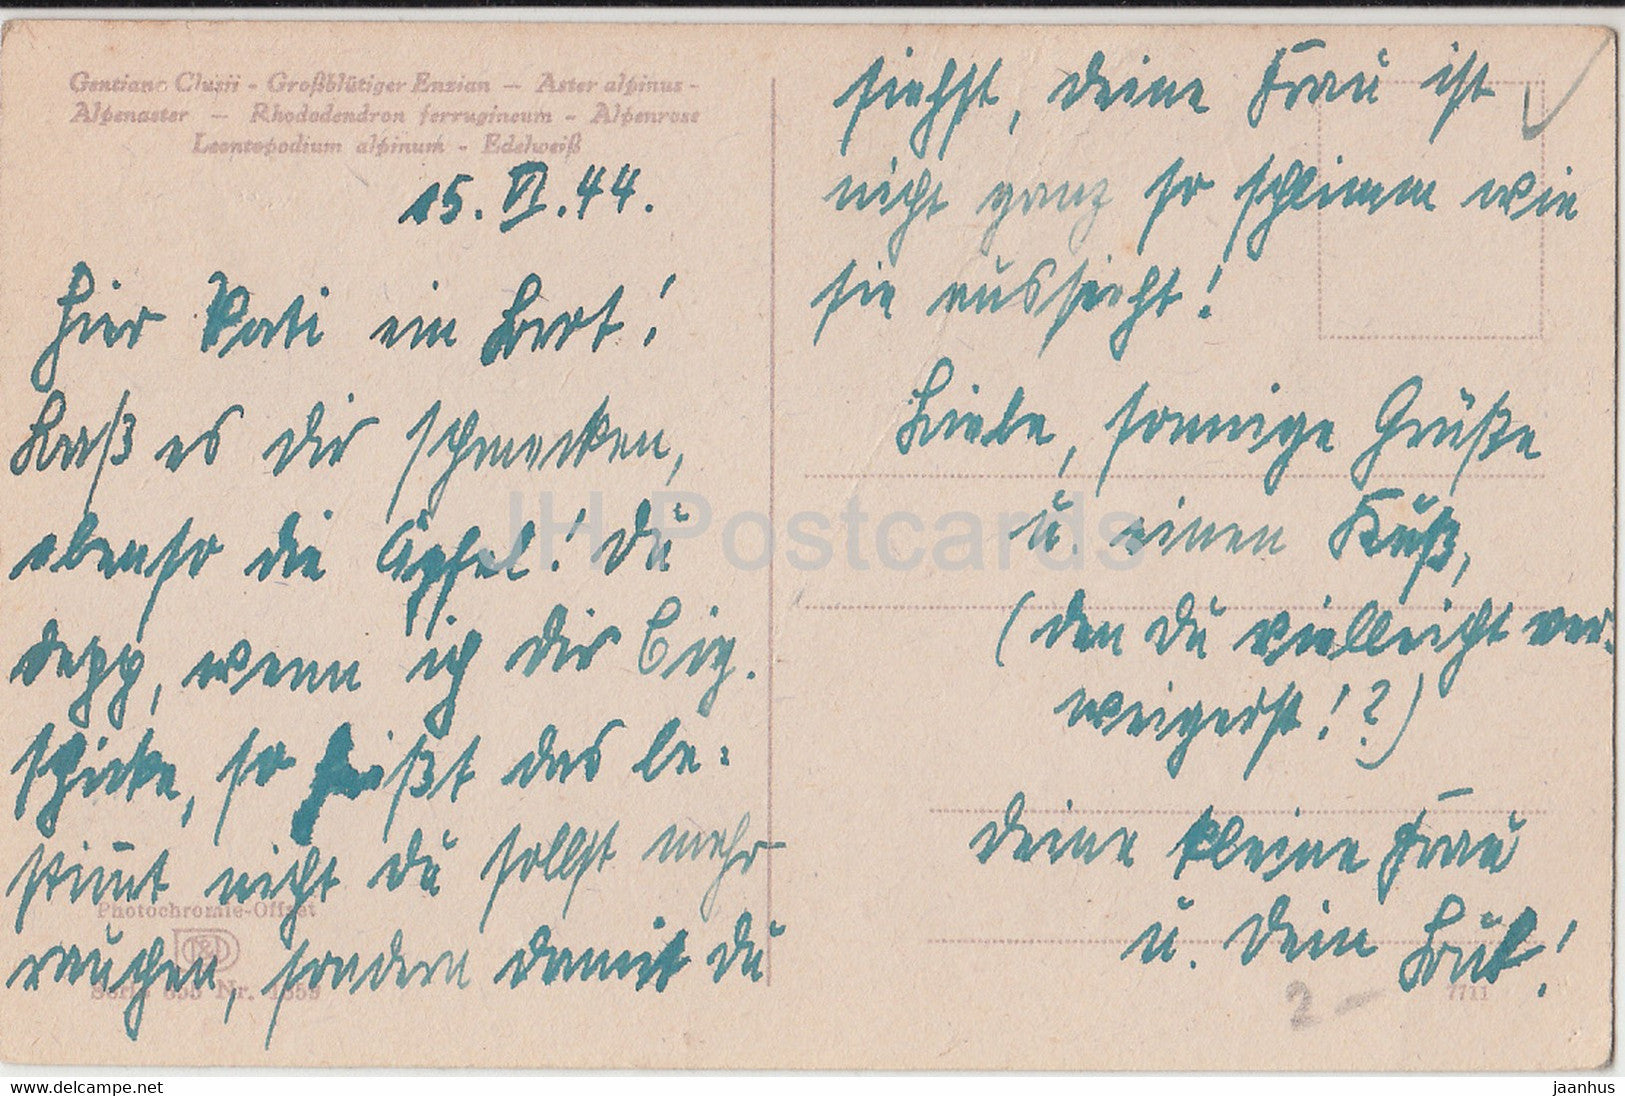 Gentiana Clusii - Großblütiger Enzian — Aster alpinus -
Alpenaster — Rhododendron ferrugineum - Alpenrose
Leontopodium alpinum - Edelweiß
15. VI. 44.
Hier Vati ein Brot!
Laß es dir schmecken,
ebenso die Äpfel! Du
depp, wenn ich dir Cig.
schicke, so heißt das be-
stimmt nicht du sollst mehr
rauchen, sondern damit du
siehst, deine Frau ist
nicht ganz so schlimm wie
sie aussieht!
Liebe, sonnige Grüße
u. einen Kuß,
(den du vielleicht ver-
weigerst!?)
deine kleine Frau
u. dein
Photochromie-Offset
Serie 653 Nr. 1859
7711
2 —
JH Postcards
www.delcampe.net
jaanhus